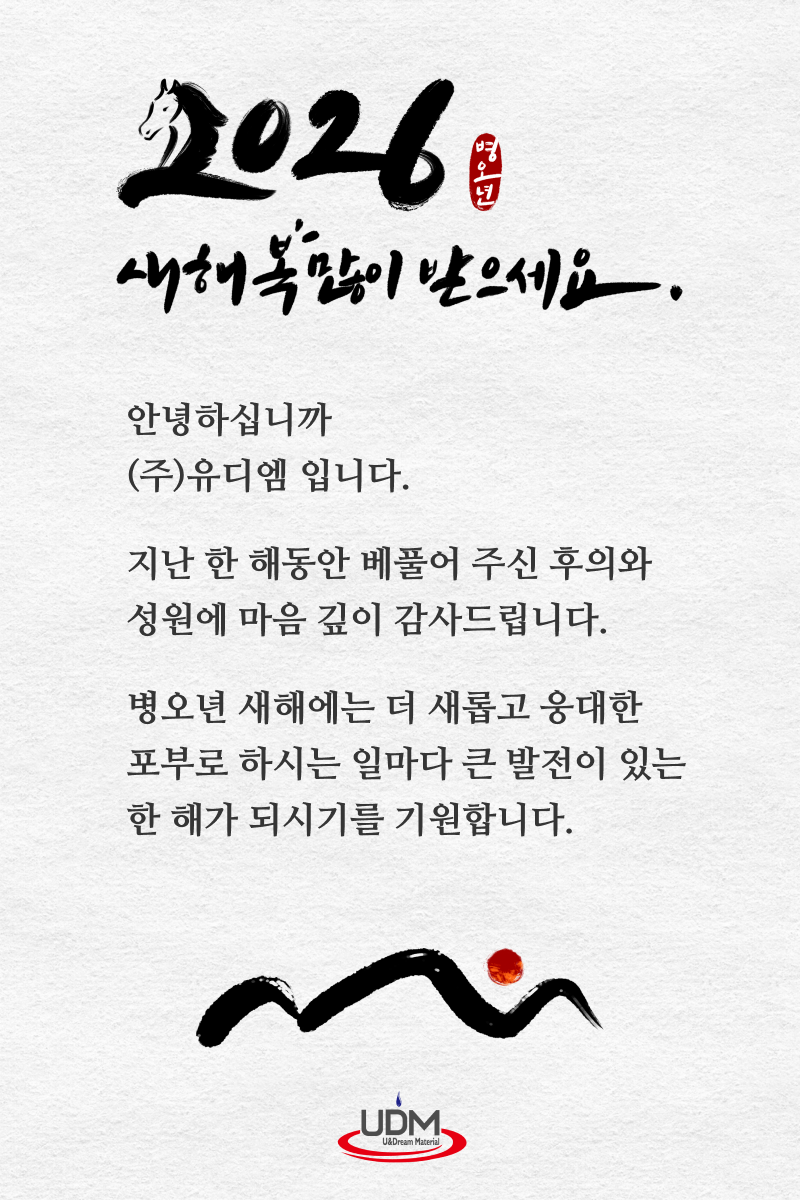 2026
병오년
새해 복 많이 받으세요.
안녕하십니까
(주)유디엠 입니다.
지난 한 해동안 베풀어 주신 후의와
성원에 마음 깊이 감사드립니다.
병오년 새해에는 더 새롭고 웅대한
포부로 하시는 일마다 큰 발전이 있는
한 해가 되시기를 기원합니다.
UDM
U&Dream Material